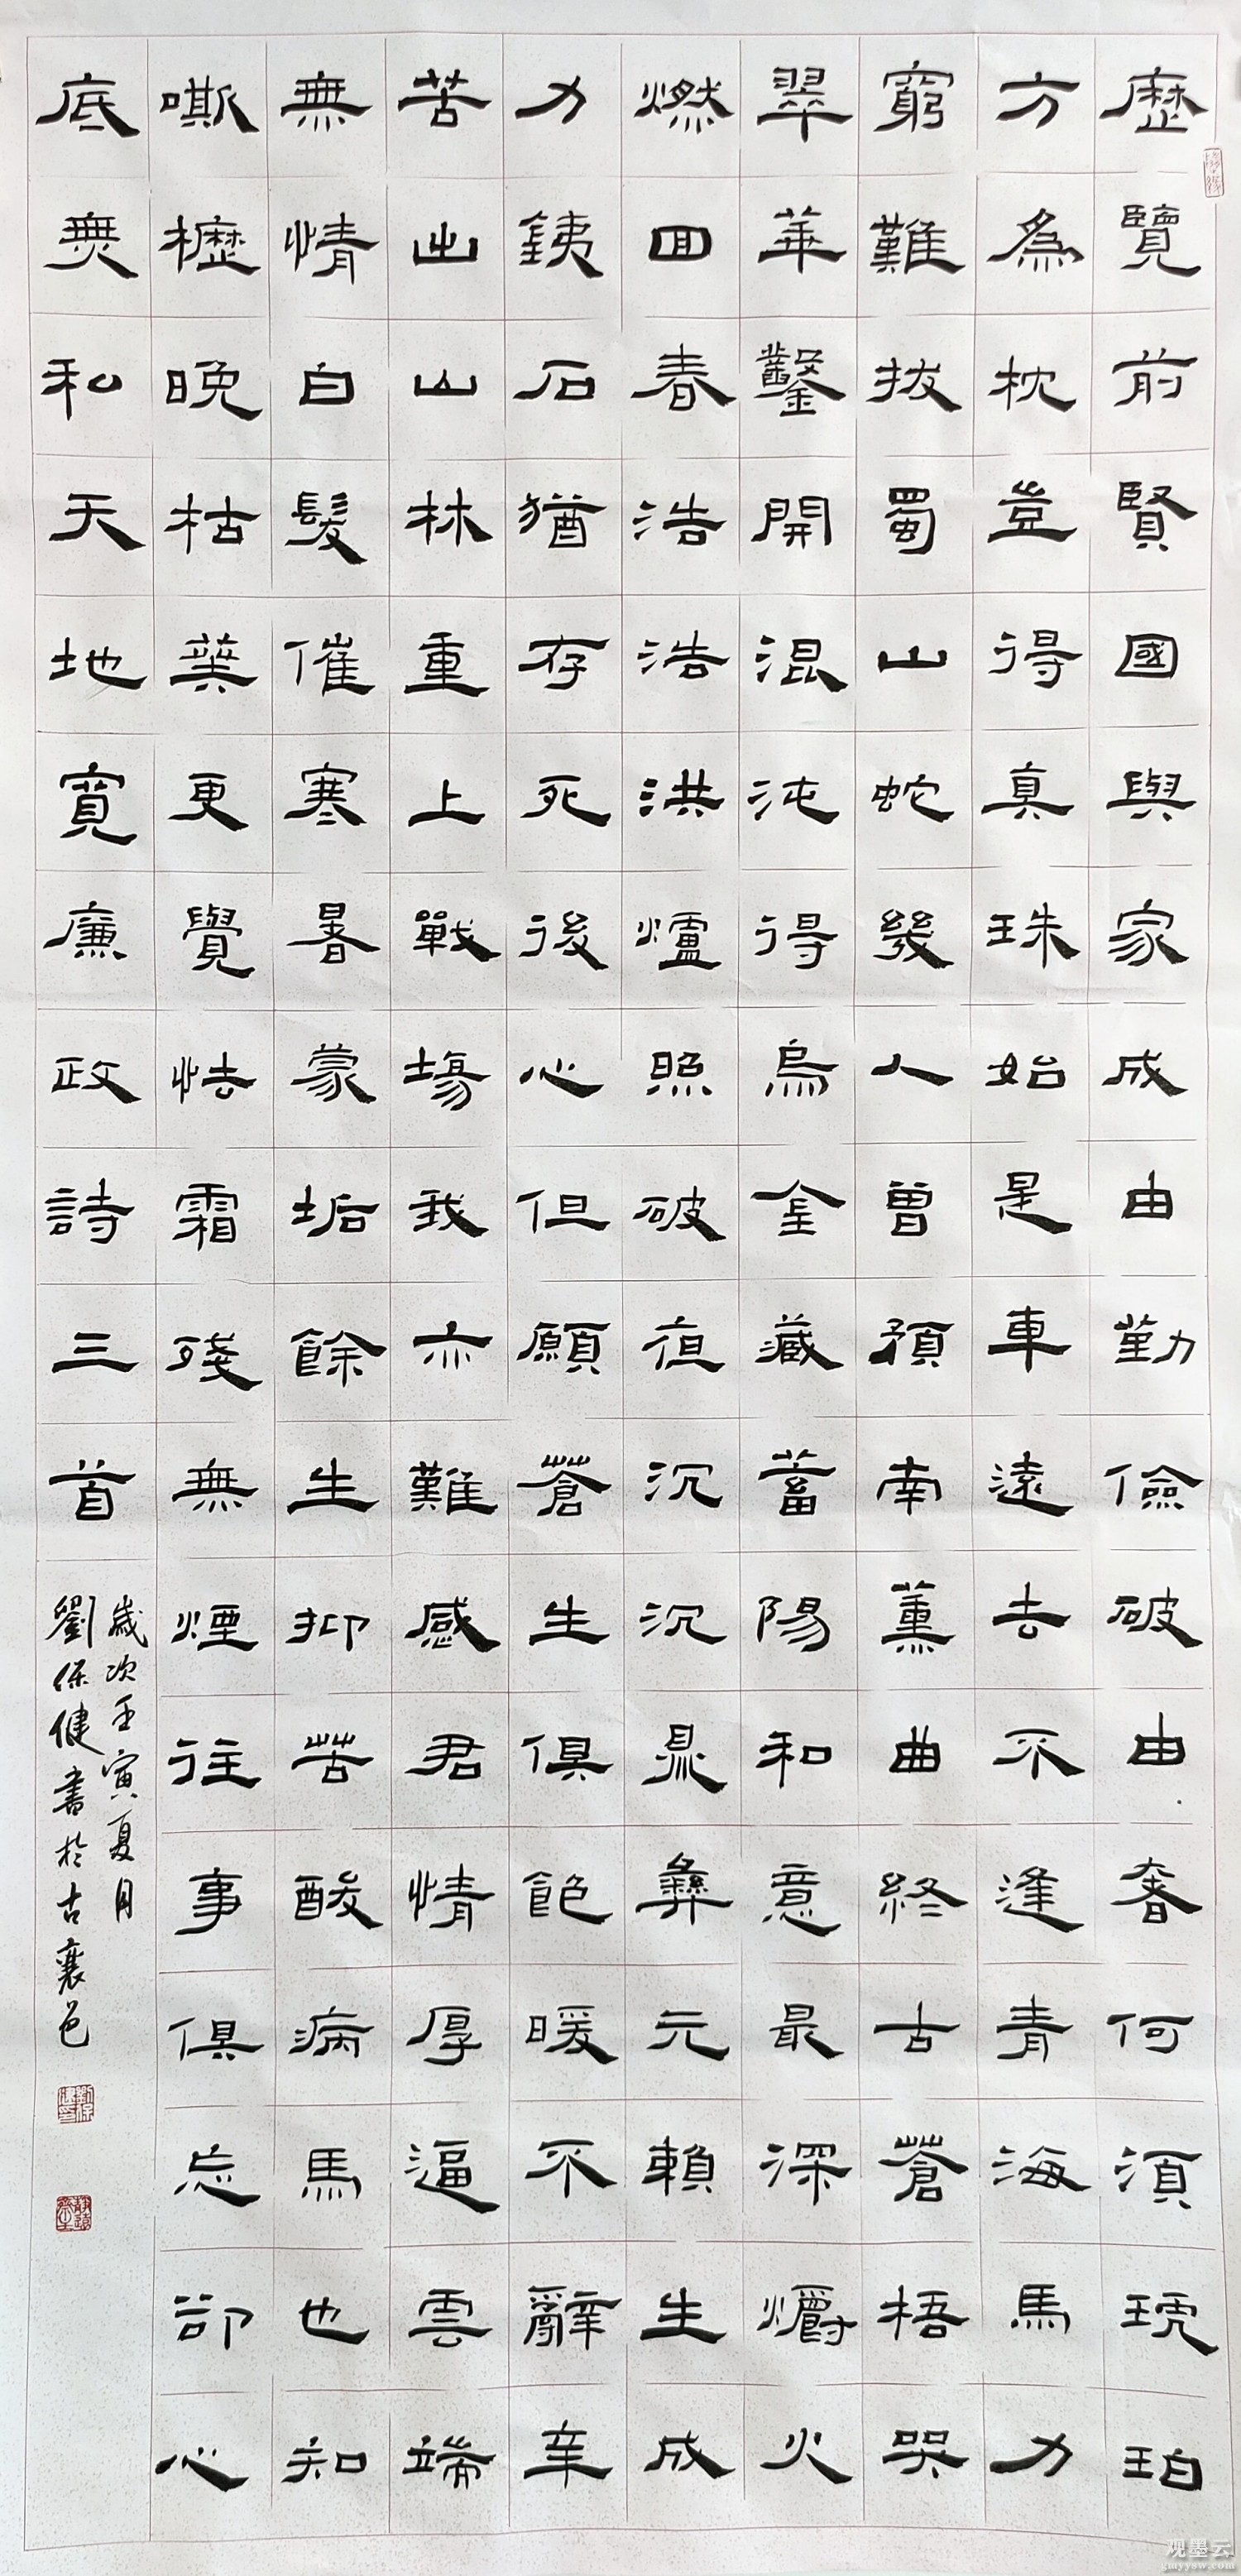 歷覽前賢國與家成由勤儉破由奢何須琥珀
方為枕豈得真珠始是車遠去不逢青海馬力
窮難拔蜀山蛇幾人曾預南薰曲終古蒼梧哭
翠華鑿開混沌得烏金藏蓄陽和意最深爝火
燃回春浩浩洪爐照破夜沉沉鼎彝元賴生成
力銕石猶存死後心但願蒼生俱飽暖不辭辛
苦出山林重上戰場我亦難感君情厚逼雲端
無情白髮催寒暑蒙垢餘生抑苦酸病馬也知
嘶櫪晚枯葵更覺怯霜殘無煙往事俱忘卻心
底無私天地寬廉政詩三首
歲次壬寅夏月
劉保健書於古襄邑
观墨云
gmyysw.com